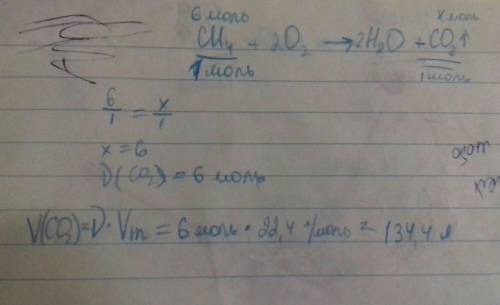 6 моль x моль
CH4 + 2O2 → 2H2O + CO2↑
1 моль 1 моль
6/1 = x/1
x = 6
D(CO2) = 6 моль
V(CO2) = D · Vm = 6 моль · 22,4 л/моль = 134,4 л